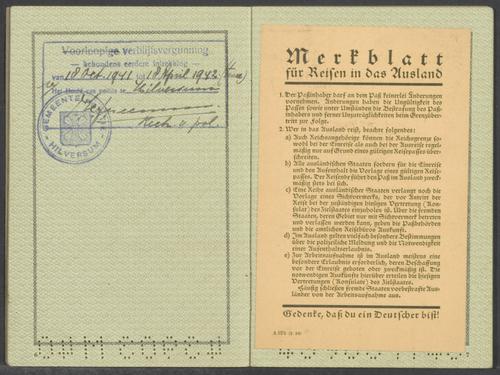 Voorloopige verblijfsvergunning
— behoudens eerdere intrekking —
van 18 Oct. 1941 tot 18 April 1942
Het Hoofd van politie te Hilversum
GEMEENTEPOLITIE
HILVERSUM
Merkblatt
für Reisen in das Ausland
1. Der Paßinhaber darf an dem Paß keinerlei Änderungen
vornehmen. Änderungen haben die Ungültigkeit des
Passes sowie unter Umständen die Bestrafung des Paß-
inhabers und ferner Unzuträglichkeiten beim Grenzüber-
tritt zur Folge.
2. Wer in das Ausland reist, beachte folgendes:
a) Auch Reichsangehörige können die Reichsgrenze so-
wohl bei der Einreise als auch bei der Ausreise regel-
mäßig nur auf Grund eines gültigen Reisepasses über-
schreiten.
b) Alle ausländischen Staaten fordern für die Einreise
und den Aufenthalt die Vorlage eines gültigen Reise-
passes. Der Reisende führt den Paß im Ausland zweck-
mäßig stets bei sich.
c) Eine Reihe ausländischer Staaten verlangt noch die
Vorlage eines Sichtvermerks, der vor Antritt der
Reise bei der zuständigen hiesigen Vertretung (Kon-
sulat) des Zielstaates einzuholen ist. Über die fremden
Staaten, deren Gebiet nur mit Sichtvermerk betreten
und verlassen werden kann, geben die Paßbehörden
und die amtlichen Reisebüros Auskunft.
d) Im Ausland gelten vielfach besondere Bestimmungen
über die polizeiliche Meldung und die Notwendigkeit
einer Aufenthaltserlaubnis.
e) Zur Arbeitsaufnahme ist im Ausland meistens eine
besondere Erlaubnis erforderlich, deren Beschaffung
vor der Einreise geboten oder zweckmäßig ist. Die
notwendigen Auskünfte hierüber erteilen die hiesigen
Vertretungen (Konsulate) des Zielstaates.
Häufig schließen fremde Staaten vorbestrafte Aus-
länder von der Arbeitsaufnahme aus.
Gedenke, daß du ein Deutscher bist!